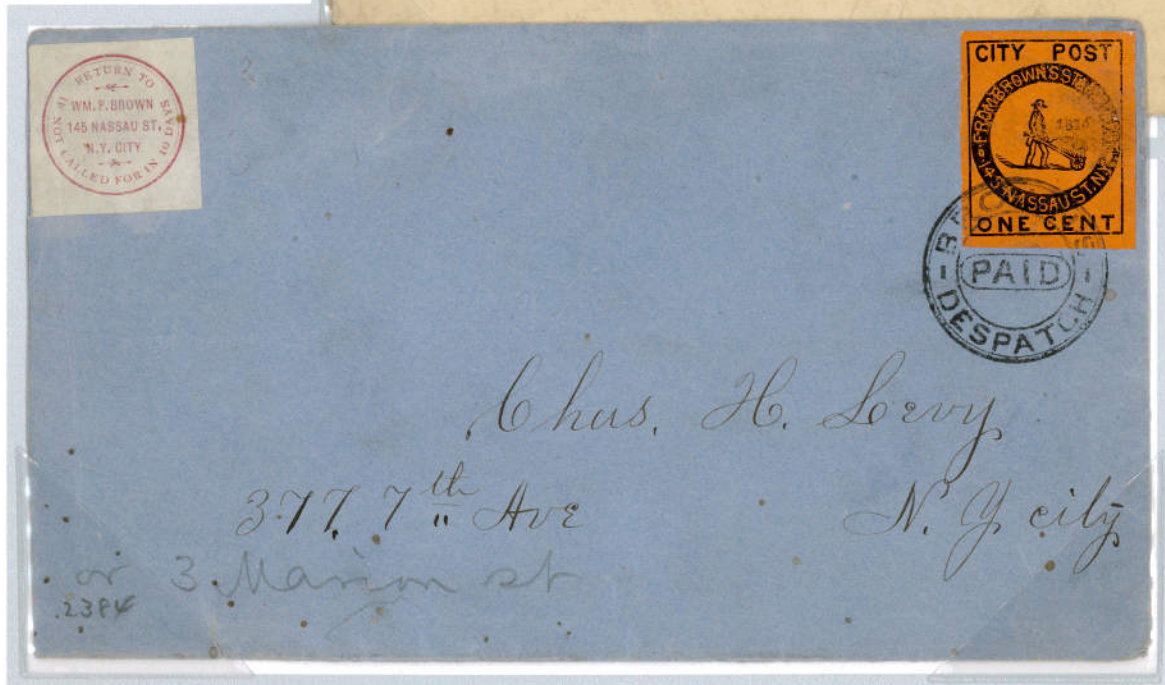 RETURN TO
WM. F. BROWN
145 NASSAU ST.
N.Y. CITY
IF NOT CALLED FOR IN 10 DAYS
CITY POST
FROM BROWN'S
145 NASSAU ST. N.Y.
ONE CENT
PAID
DESPATCH
Chas. H. Levy
377, 7th Ave N. Y city
or 3 Marion st
2384